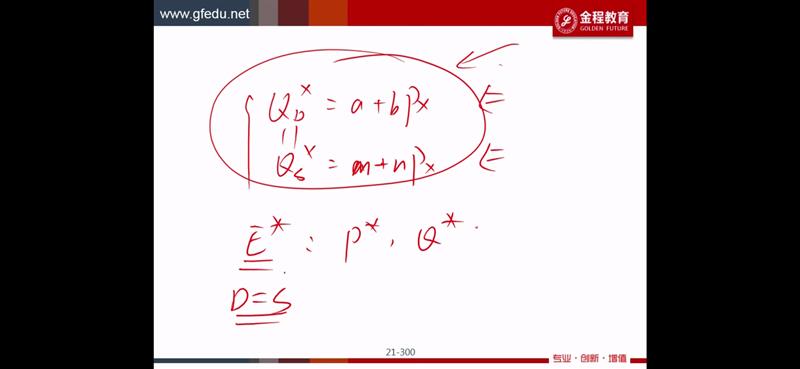 www.gfedu.net
金程教育
GOLDEN FUTURE
Q_D^x = a + bPx ⇐
||
Q_S^x = m + nPx ⇐
E* : P*, Q*.
D=S
21-300
专业·创新·增值